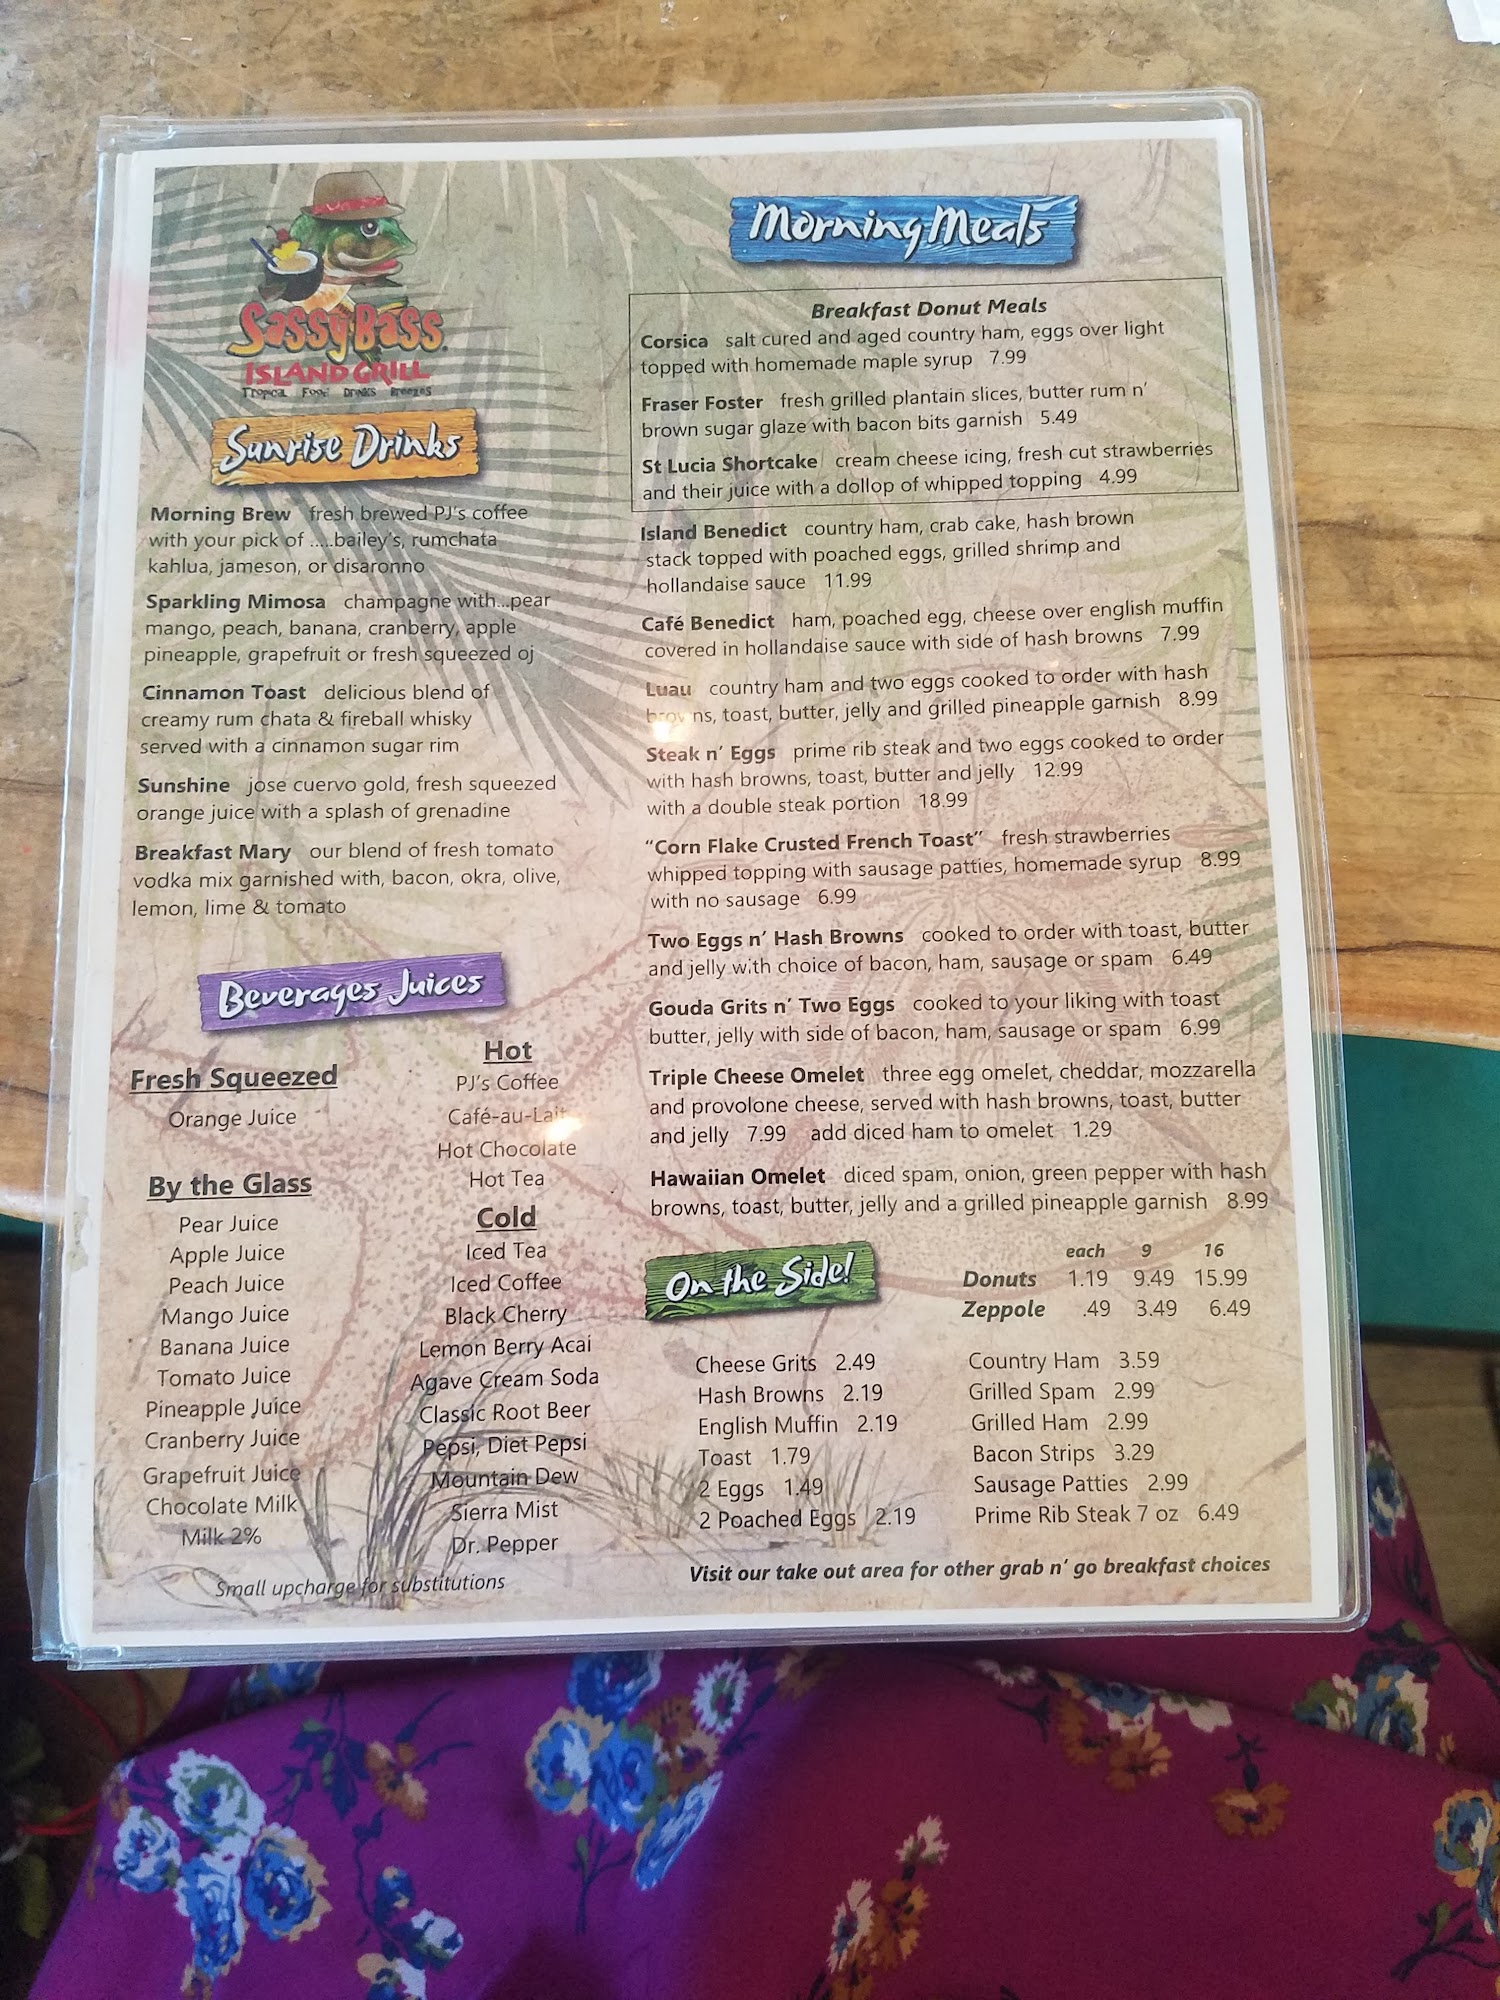 Sassy Bass
ISLAND GRILL
Tropical Food Drinks Breezes
Sunrise Drinks
Morning Brew fresh brewed PJ's coffee
with your pick of .....bailey's, rumchata
kahlua, jameson, or disaronno
Sparkling Mimosa champagne with...pear
mango, peach, banana, cranberry, apple
pineapple, grapefruit or fresh squeezed oj
Cinnamon Toast delicious blend of
creamy rum chata & fireball whisky
served with a cinnamon sugar rim
Sunshine jose cuervo gold, fresh squeezed
orange juice with a splash of grenadine
Breakfast Mary our blend of fresh tomato
vodka mix garnished with, bacon, okra, olive,
lemon, lime & tomato
Beverages Juices
Fresh Squeezed
Orange Juice
By the Glass
Pear Juice
Apple Juice
Peach Juice
Mango Juice
Banana Juice
Tomato Juice
Pineapple Juice
Cranberry Juice
Grapefruit Juice
Chocolate Milk
Milk 2%
Hot
PJ's Coffee
Café-au-Lait
Hot Chocolate
Hot Tea
Cold
Iced Tea
Iced Coffee
Black Cherry
Lemon Berry Acai
Agave Cream Soda
Classic Root Beer
Pepsi, Diet Pepsi
Mountain Dew
Sierra Mist
Dr. Pepper
Small upcharge for substitutions
Morning Meals
Breakfast Donut Meals
Corsica salt cured and aged country ham, eggs over light
topped with homemade maple syrup 7.99
Fraser Foster fresh grilled plantain slices, butter rum n'
brown sugar glaze with bacon bits garnish 5.49
St Lucia Shortcake cream cheese icing, fresh cut strawberries
and their juice with a dollop of whipped topping 4.99
Island Benedict country ham, crab cake, hash brown
stack topped with poached eggs, grilled shrimp and
hollandaise sauce 11.99
Café Benedict ham, poached egg, cheese over english muffin
covered in hollandaise sauce with side of hash browns 7.99
Luau country ham and two eggs cooked to order with hash
browns, toast, butter, jelly and grilled pineapple garnish 8.99
Steak n' Eggs prime rib steak and two eggs cooked to order
with hash browns, toast, butter and jelly 12.99
with a double steak portion 18.99
"Corn Flake Crusted French Toast" fresh strawberries
whipped topping with sausage patties, homemade syrup 8.99
with no sausage 6.99
Two Eggs n' Hash Browns cooked to order with toast, butter
and jelly with choice of bacon, ham, sausage or spam 6.49
Gouda Grits n' Two Eggs cooked to your liking with toast
butter, jelly with side of bacon, ham, sausage or spam 6.99
Triple Cheese Omelet three egg omelet, cheddar, mozzarella
and provolone cheese, served with hash browns, toast, butter
and jelly 7.99 add diced ham to omelet 1.29
Hawaiian Omelet diced spam, onion, green pepper with hash
browns, toast, butter, jelly and a grilled pineapple garnish 8.99
On the Side!
each 9 16
Donuts 1.19 9.49 15.99
Zeppole .49 3.49 6.49
Cheese Grits 2.49
Hash Browns 2.19
English Muffin 2.19
Toast 1.79
2 Eggs 1.49
2 Poached Eggs 2.19
Country Ham 3.59
Grilled Spam 2.99
Grilled Ham 2.99
Bacon Strips 3.29
Sausage Patties 2.99
Prime Rib Steak 7 oz 6.49
Visit our take out area for other grab n' go breakfast choices